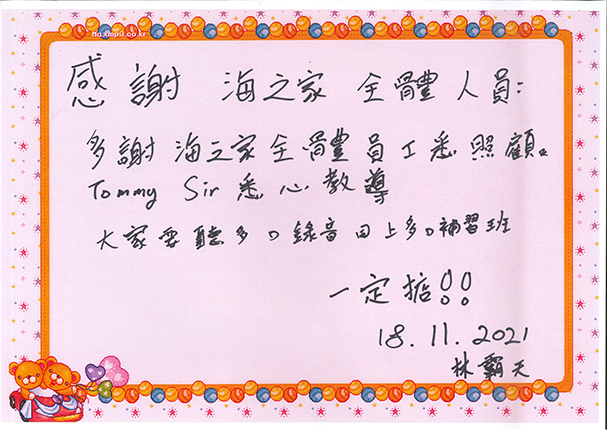 maximpid.co.kr
感謝 海之家 全體人員:
多謝海之家全體員工悉照顧。
Tommy Sir 悉心教導
大家要聽多D錄音 上多D補習班
一定掂!!
18.11.2021
林霸天